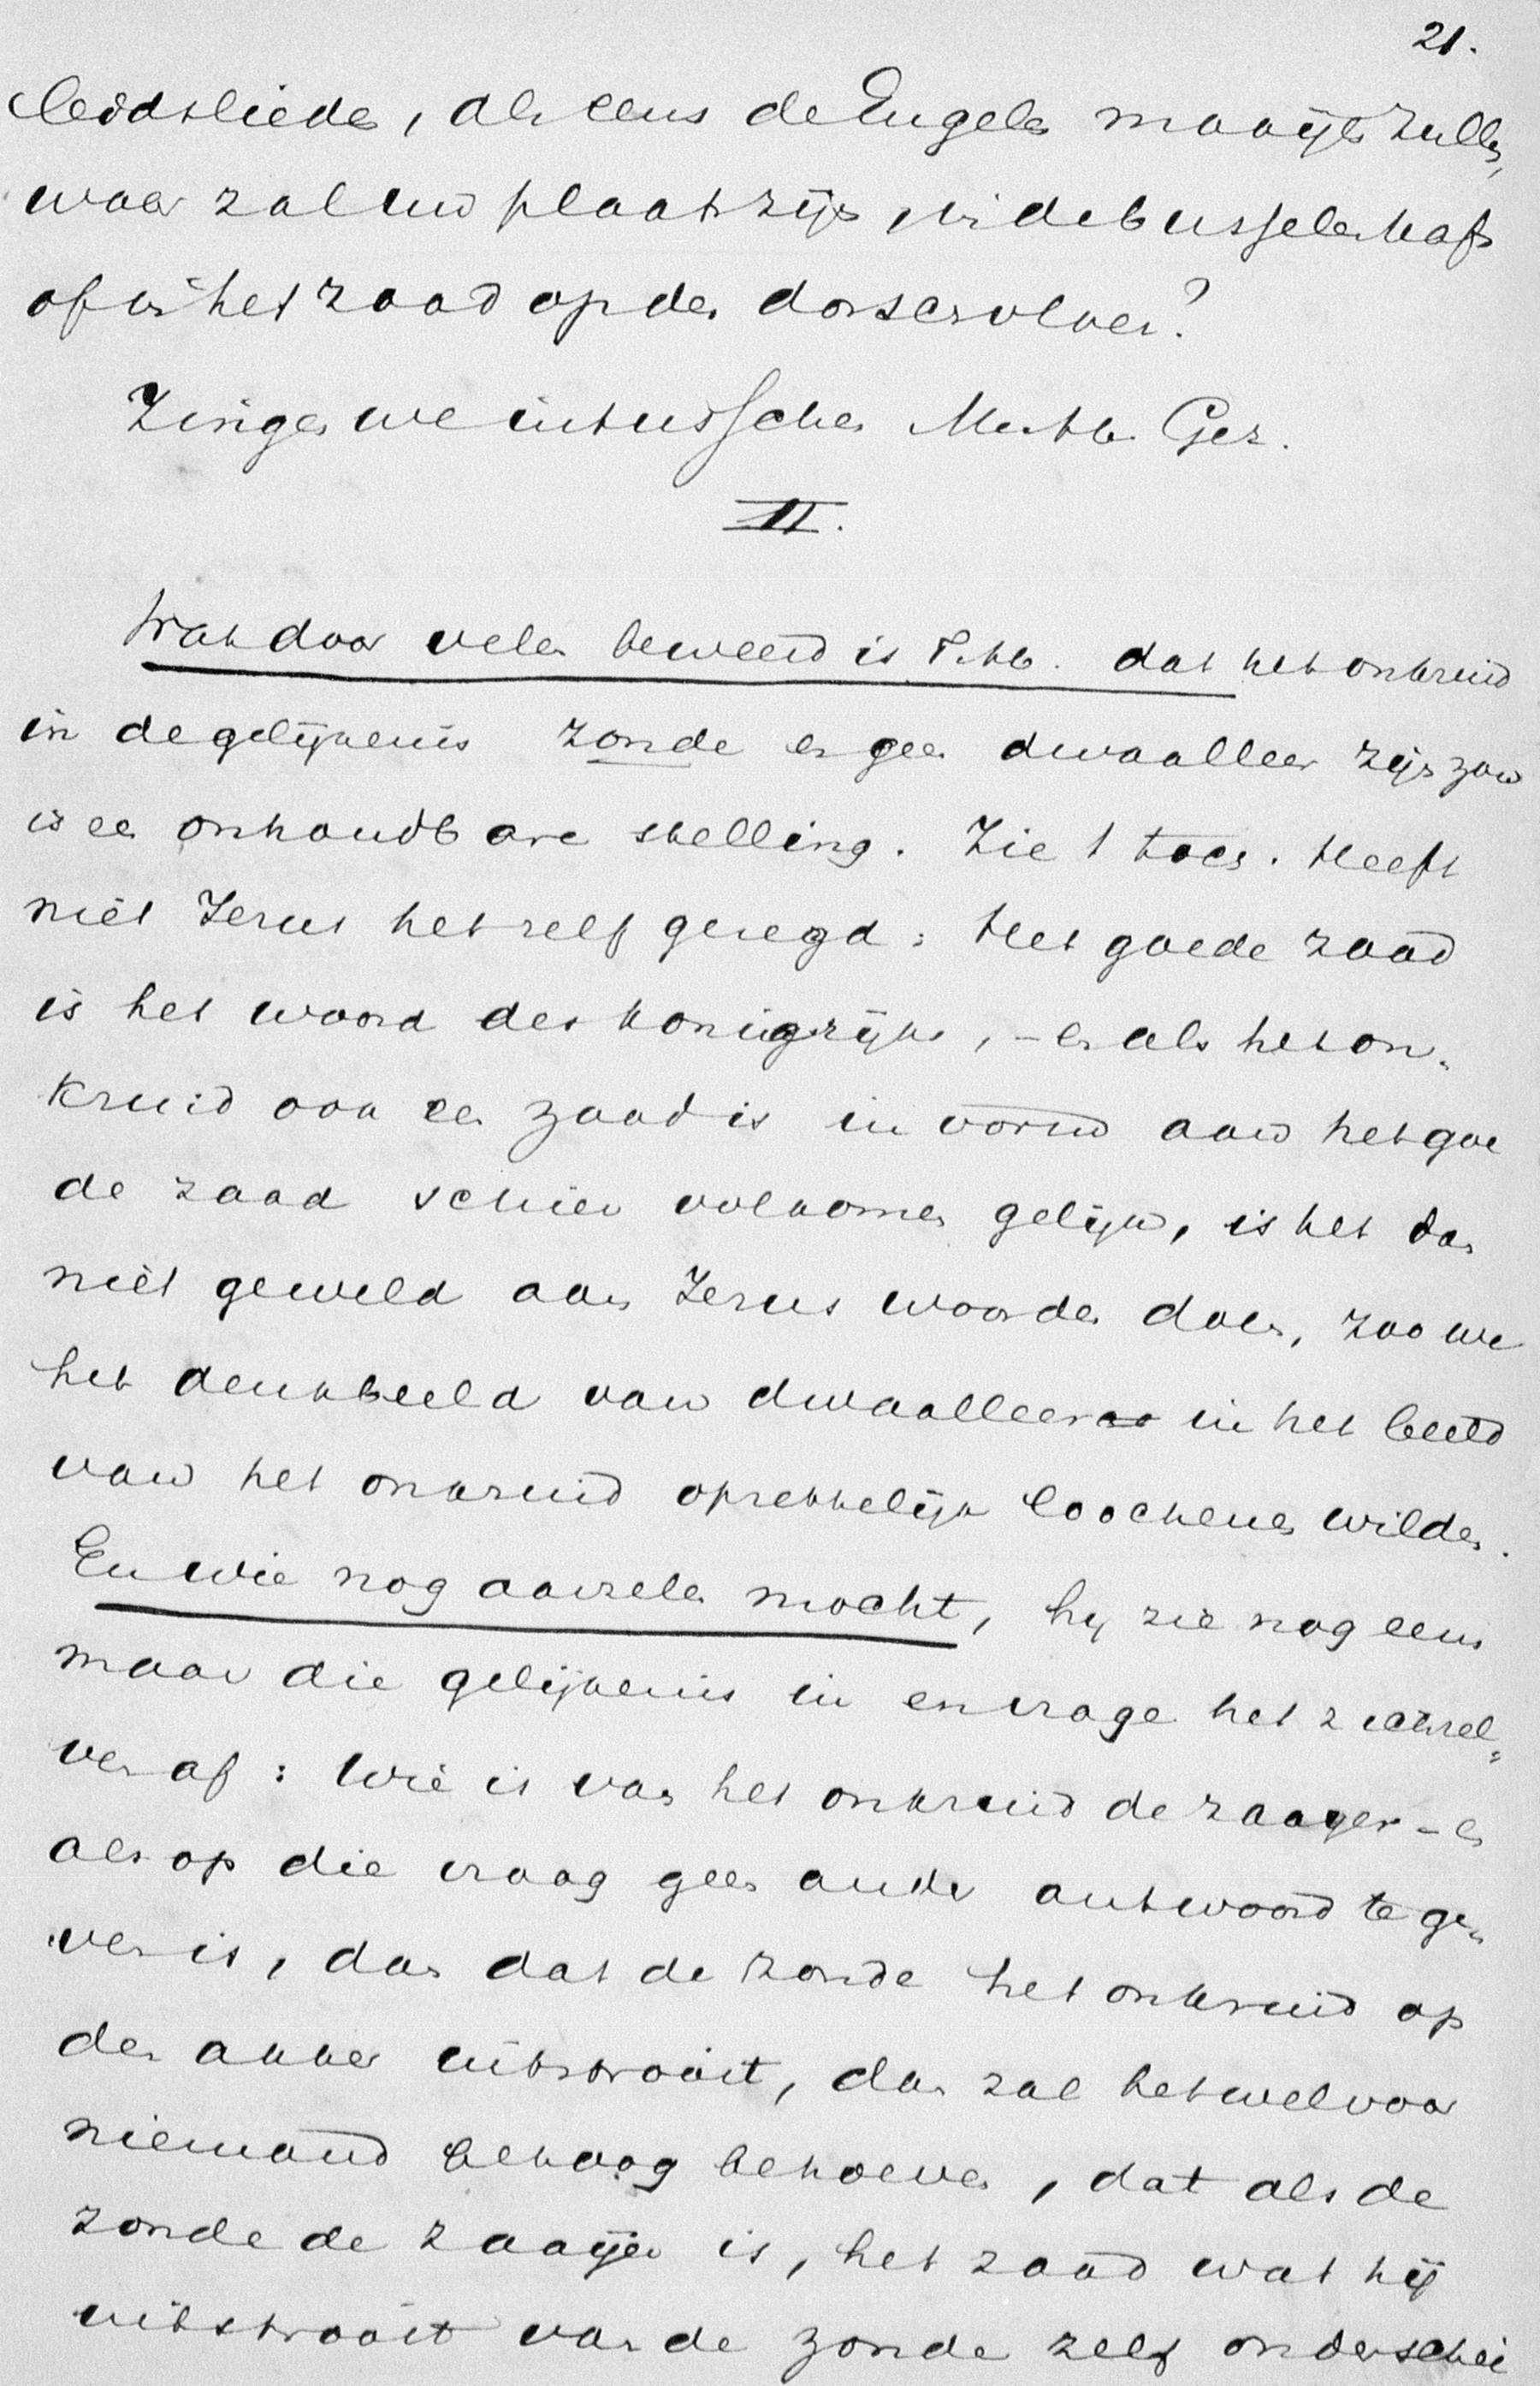 21.
leidslieden, als eens de Engelen maaijen zullen,
waar zal uw plaats zijn, in de busselen kaf
of in het zaad op den dorschvloer?
Zingen we intusschen Gez.
II.
Wat door velen beweerd is dat het onkruid
in de gelijkenis zonde en geen dwaalleer zijn zou
is een onhoudbare stelling. Zie 't toch. Heeft
niet Jezus het zelf gezegd: Het goede zaad
is het woord des konigrijks, – en als het on-
kruid ook een zaad is in vorm aan het goe
de zaad schier volkomen gelijk, is het dan
niet geweld aan Jezus woorden doen, zoo we
het denkbeeld van dwaalleer in het beeld
van het onkruid opzettelijk loochenen wilden.
En wie nog aarzelen mocht, hij zie nog eens
maar die gelijkenis in en vrage het zichzel-
ven af: Wie is van het onkruid de zaayer – en
als op die vraag geen ander antwoord te ge-
ven is, dan dat de zonde het onkruid op
den akker uitstrooit, dan zal het wel voor
niemand betoog behoeven, dat als de
zonde de zaaijer is, het zaad wat hij
uitstrooit van de zonde zelf onderschei